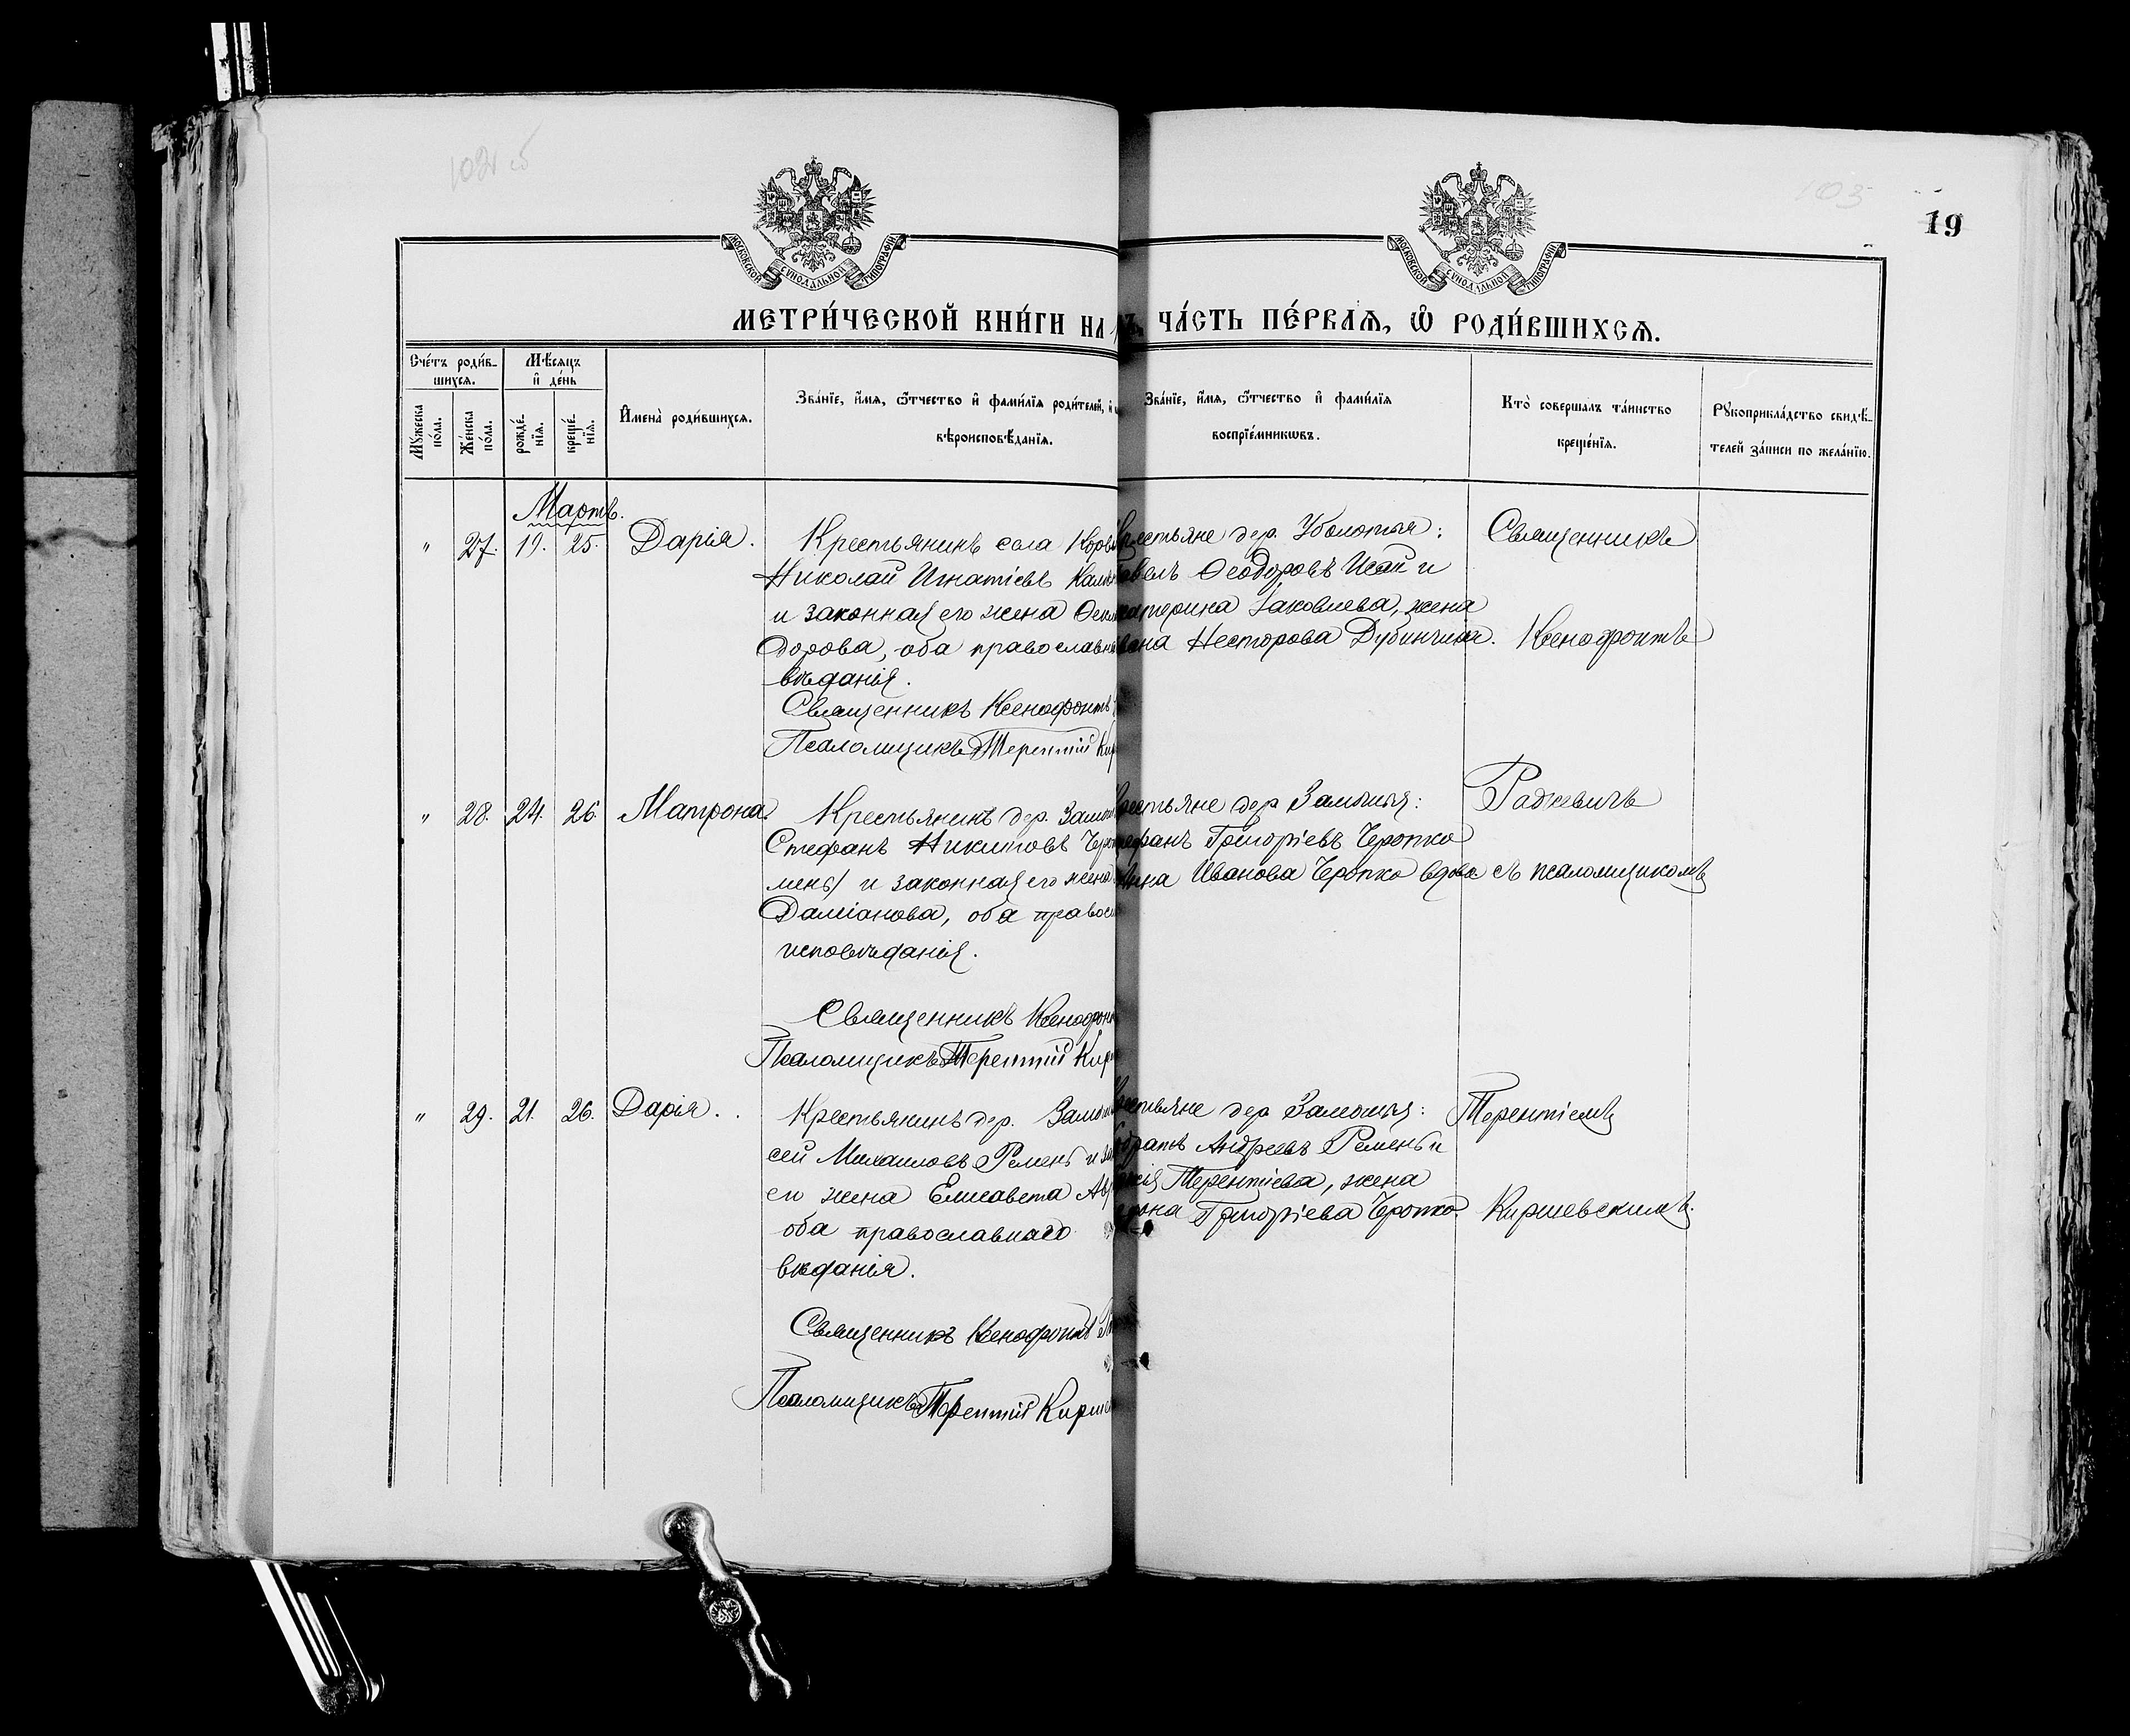 102 об
103
19
МОСКОВСКОЙ СѴНОДАЛЬНОЙ ТИПОГРАФІИ
МОСКОВСКОЙ СѴНОДАЛЬНОЙ ТИПОГРАФІИ
МЕТРИ́ЧЕСКОЙ КНИ́ГИ НА
ЧА́СТЬ ПЕ́РВАѦ, Ѽ РОДИ́ВШИХСѦ.
Сче́тъ роди́в-
шихсѧ.
Мꙋ́жеска
по́ла.
Же́нска
по́ла.
Мѣ́сяцъ
и҆ де́нь
рожде́-
нїѧ.
креще́-
нїѧ.
И҆мена̀ роди́вшихсѧ.
Зва́нїе, и҆́мѧ, ѻ҆́тчество и҆ фами́лїѧ роди́телей, и҆
вѣроисповѣ́данїѧ.
Зва́нїе, и҆́мѧ, ѻ҆́тчество и҆ фами́лїѧ
воспрїе́мникѡвъ.
Кто̀ соверша́лъ та́инство
креще́нїѧ.
Рꙋкоприкла́дство свидѣ́-
телей за́писи по жела́нїю.
Мартъ.
" 27. 19. 25. Дарія.
Крестьянинъ села
Николай Игнатіевъ
и законная его жена
дорова, оба православн
вѣданія.
Священникъ Ксенофонтъ
Псаломщикъ Терентій Кир
Крестьяне дер. Уболотья:
Павелъ Ѳеодоровъ Исай и
катерина Іаковлева, жена
Ивана Несторова Дубинчина.
Священникъ
Ксенофонтъ
" 28. 24. 26. Матрона.
Крестьянинъ дер. Замош
Стефанъ Никитовъ Чроп
мень) и законная его жена
Даміанова, оба правос
исповѣданія.
Священникъ Ксенофон
Псаломщикъ Терентій Кир
Крестьяне дер. Замошья:
Стефанъ Григоріевъ Чропко
Анна Иванова Чропко вдова
Радкевичъ
съ псаломщикомъ
" 29. 21. 26. Дарія.
Крестьянинъ дер. Замош
сей Михаиловъ Ремень и за
его жена Елисавета
оба православнаго
вѣданія.
Священникъ Ксенофонтъ
Псаломщикъ Терентій Кирше
Крестьяне дер. Замошья:
Андреевъ Ремень и
Терентіева, жена
Григоріева Чропко.
Терентіемъ
Киршевскимъ.